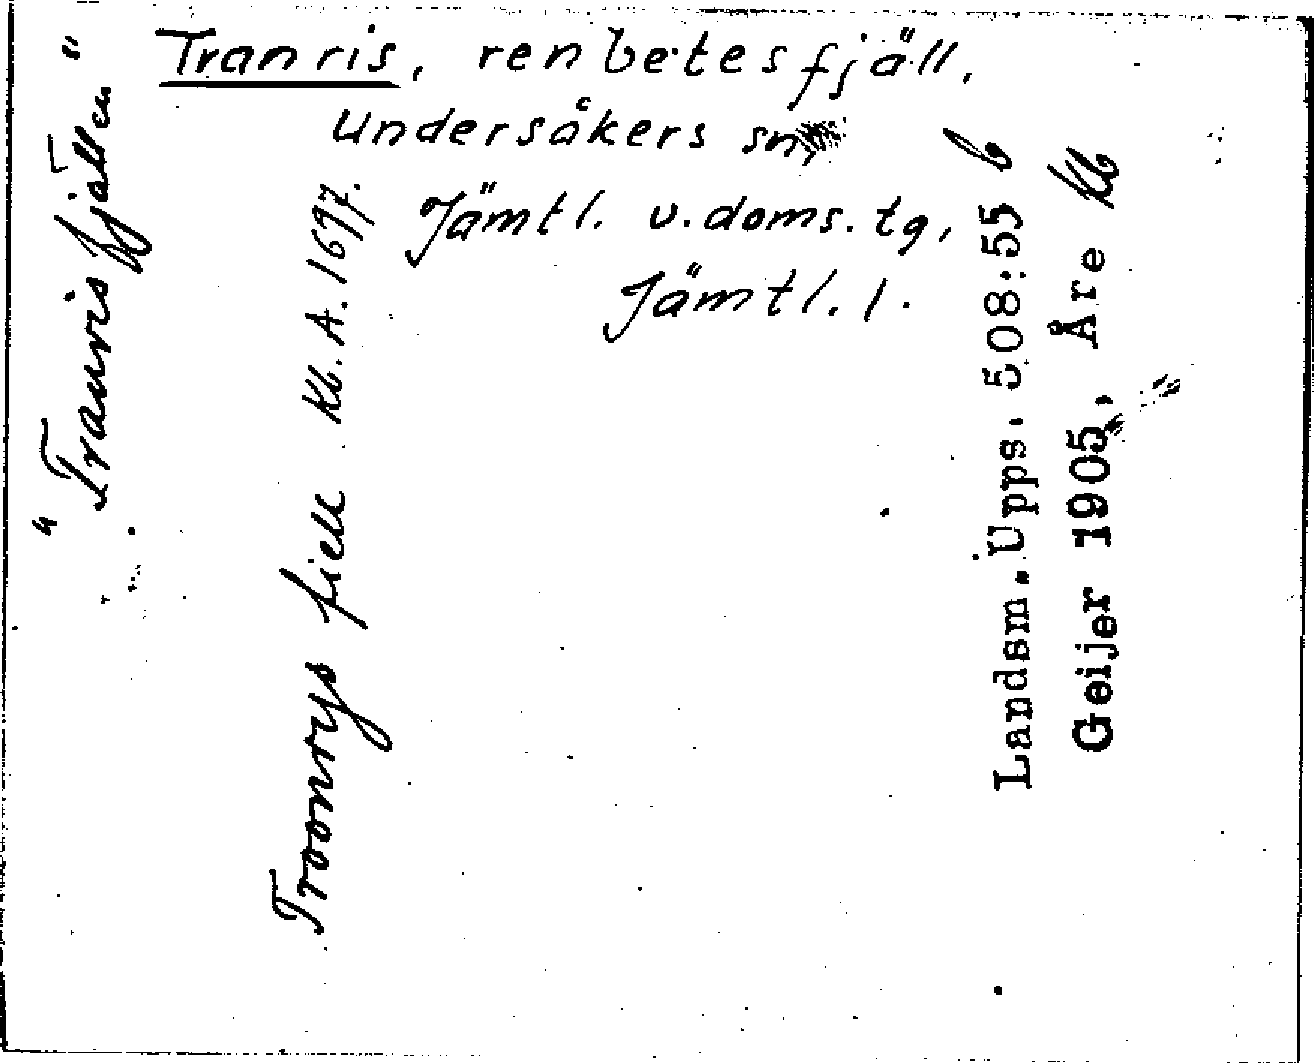 Tranris, renbetesfjäll,
Undersåkers sn,
Jämtl. v. doms. tg,
Jämtl. l.
"Tranris fjällen"
Troonrys fiell Kb. A. 1697.
Landsm. Upps. 508:55 b
Geijer 1905, Åre kb